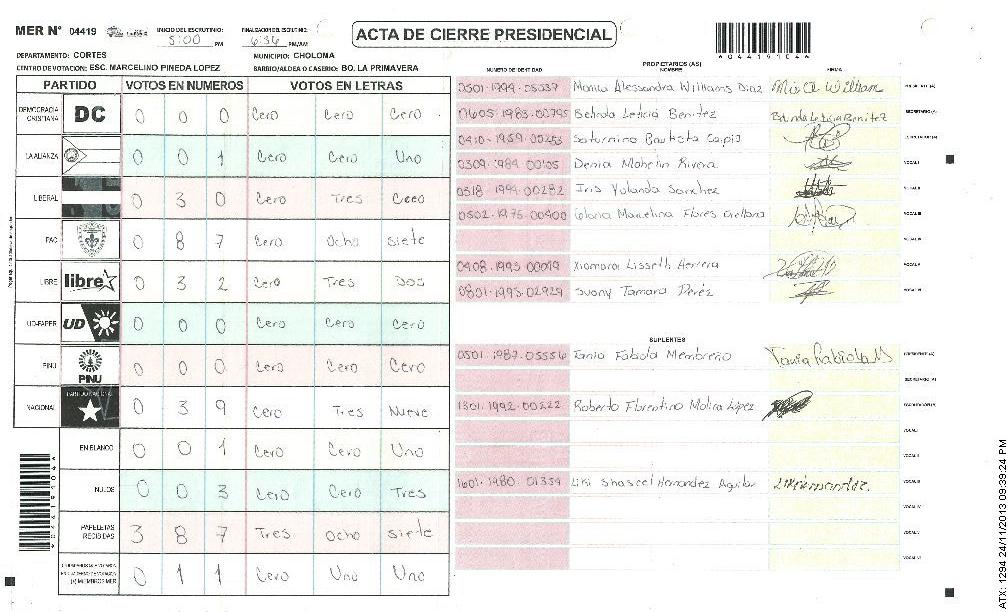 MER N° 04419
INICIO DEL ESCRUTINIO: 5:00 PM
FINALIZACION DEL ESCRUTINIO: 6:36 PM/AM
ACTA DE CIERRE PRESIDENCIAL
A04419104A
DEPARTAMENTO: CORTES
MUNICIPIO: CHOLOMA
CENTRO DE VOTACION: ESC. MARCELINO PINEDA LOPEZ
BARRIO/ALDEA O CASERIO: BO. LA PRIMAVERA
PARTIDO VOTOS EN NUMEROS VOTOS EN LETRAS
DEMOCRACIA CRISTIANA DC 0 0 0 Cero Cero Cero
LA ALIANZA 0 0 1 Cero Cero Uno
LIBERAL 0 3 0 Cero Tres Cero
PAC 0 8 7 Cero Ocho siete
LIBRE libre 0 3 2 Cero Tres Dos
UD-FAPER UD 0 0 0 Cero Cero Cero
PINU PINU 0 0 0 Cero Cero Cero
NACIONAL PARTIDO NACIONAL 0 3 9 Cero Tres Nueve
EN BLANCO 0 0 1 Cero Cero Uno
NULOS 0 0 3 Cero Cero Tres
PAPELETAS RECIBIDAS 3 8 7 Tres Ocho siete
(+) MIEMBROS MER 0 1 1 Cero Uno Uno
PROPIETARIOS (AS)
NUMERO DE IDENTIDAD NOMBRE FIRMA
Monica Alessandra Williams Diaz PRESIDENTE (A)
0605-1983-00795 Belinda Leticia Benitez Belinda Leticia Benitez SECRETARIO (A)
Saturnino Bautista ESCRUTADOR (A)
0309-1984-00105 Denia Mabelin Rivera VOCAL I
0518-1994-00282 Iris Yolanda Sanchez VOCAL II
0502-1975-00400 Gloria Marcelina Flores Orellana VOCAL III
VOCAL IV
0408-1993-00079 Xiomara Lisseth Herrera VOCAL V
0801-1993-02929 Suony Tamara Perez VOCAL VI
SUPLENTES
0501-1987-05556 Tania Fabiola Membreño Tania Fabiola M PRESIDENTE (A)
SECRETARIO (A)
1301-1992-00222 Roberto Florentino Molina López ESCRUTADOR (A)
VOCAL I
VOCAL II
1601-1980-01359 Hernandez Aguilar VOCAL III
VOCAL IV
VOCAL V
VOCAL VI
ATX: 1294 24/11/2013 09:39:24 PM